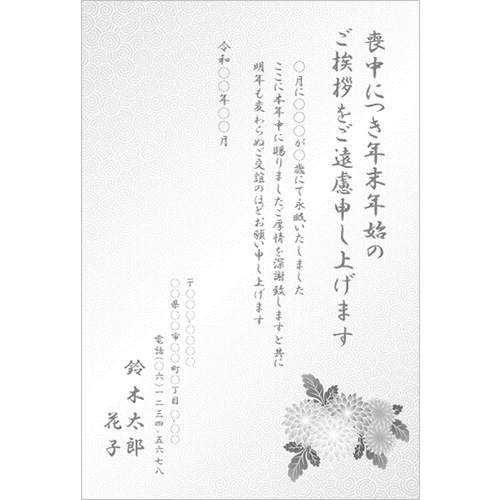 喪中につき年末年始の
ご挨拶をご遠慮申し上げます
〇月に〇〇〇が〇歳にて永眠いたしました
ここに本年中に賜りましたご厚情を深謝致しますと共に
明年も変わらぬご交誼のほどお願い申し上げます
令和〇〇年〇〇月
〒〇〇〇-〇〇〇〇
〇〇県〇〇市〇〇町〇丁目〇-〇〇
電話(〇六)一二三四-五六七八
鈴木太郎
花子